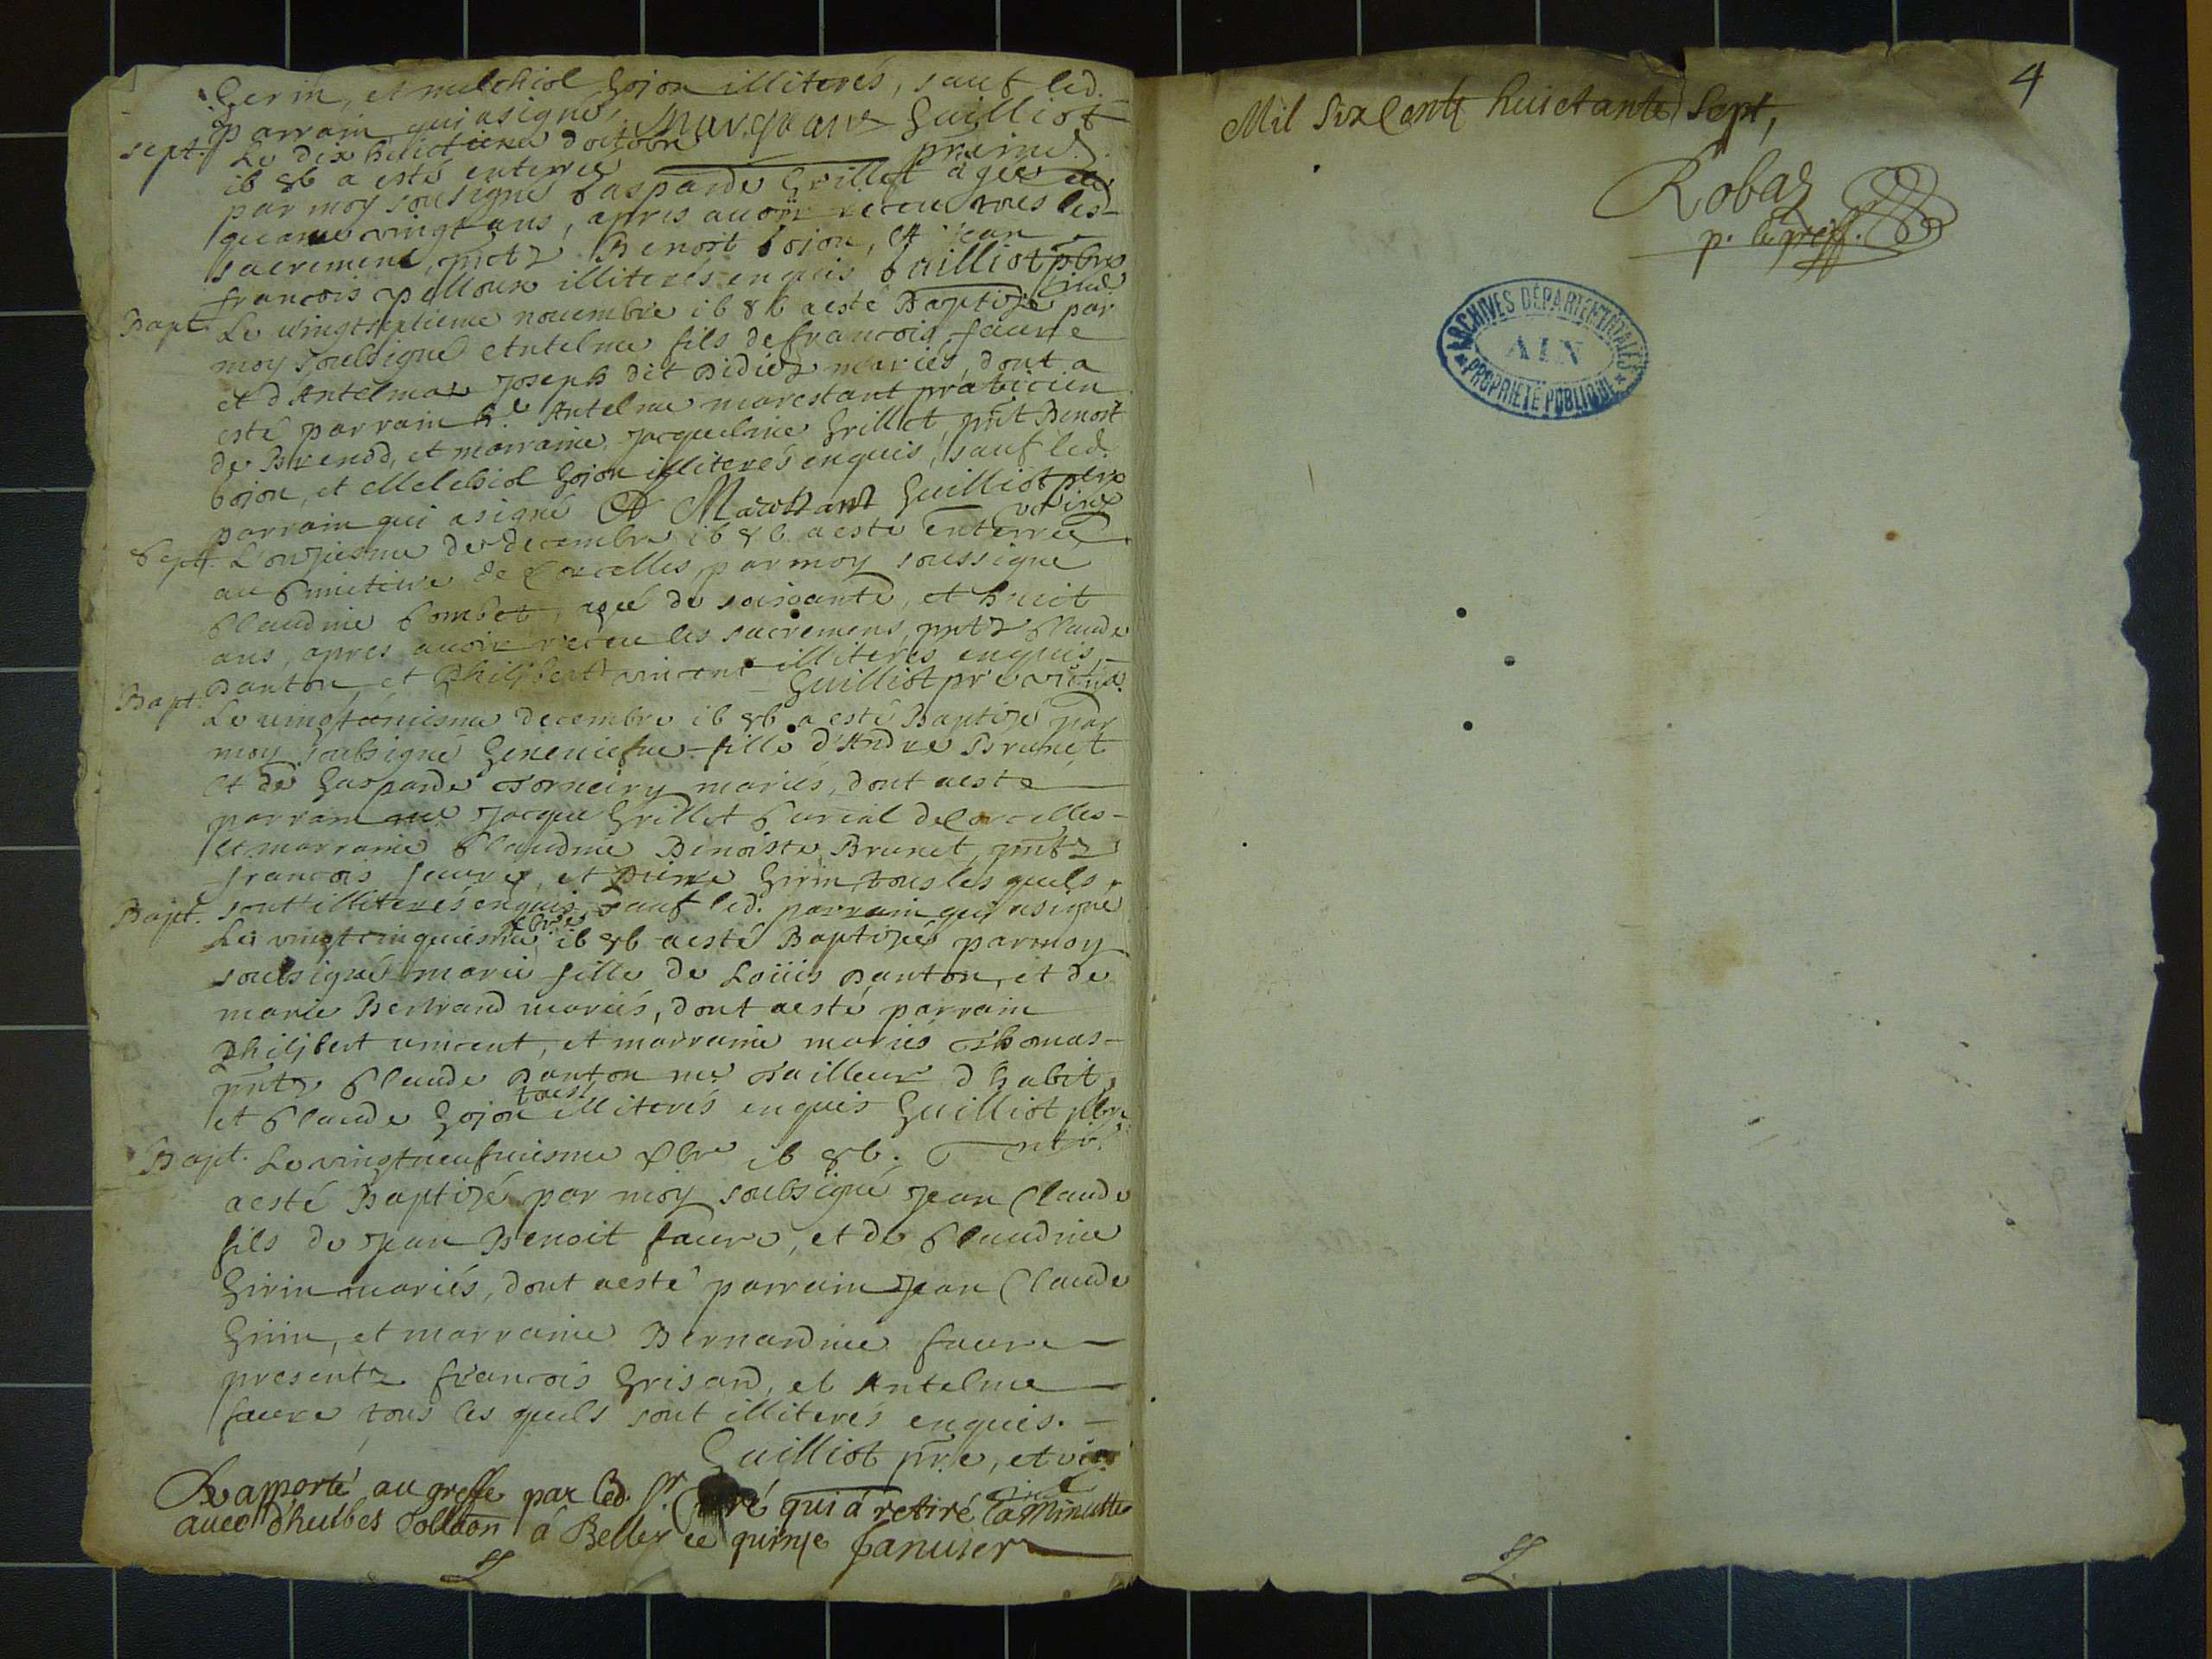 Gerin, et melchiol Gojon illiterés, sauf led.
parrain qui a signé. Guilliot
sept. Le dix huictieme doctobre
ib 8b a esté enterrée
par moy sousigné Gasparde Grillet agée de
quatre vingt ans, apres auoir receu tous les
sacremens, pntz Benoit Gojon, et Jean
francois pelloux illiterés enquis Guilliot pbre
Bapt. Le vingtseptieme nouembre ib 8b a esté Baptizé par
moy soubsigné Antelme fils de francois faure
et d'Antelma Joseph dit Didier mariés, dont a
esté parrain Antelme marestant praticien
de Brenod, et marraine Jacqueline Grillet, pnt Benoit
Gojon, et Melchiol Gojon illiterés enquis, sauf led.
parrain qui a signé Guilliot pbre
Sept. L'onziesme de decembre ib 8b a esté enterrée
au Cimetiere de Corcelles, par moy soussigné
Claudine Combet, agée de soixante, et huict
ans, apres auoir receu les sacremens, pntz Claude
Danton et Philibert vincent illiterés enquis
Guilliot pre vicaire
Bapt. Le vingtuniesme decembre ib 8b a esté Baptizé par
moy soubsigné Geneuiefue fille d'André Brunet
et de Gasparde mariés, dont a esté
parrain me Jacque Grillet Curial de Corcelles
et marraine Claudine Benoiste Brunet, pntz
francois faure, et pierre Girin tous les quels
Bapt. sont illiterés enquis, sauf led. parrain qui a signé
Le vingtcinquiesme xbre ib 8b a esté Baptizée par moy
soubsigné marie fille de Loüis Danton, et de
marie Bertrand mariés, dont a esté parrain
Philibert vincent, et marraine marie Thomas
pntz Claude Danton me Tailleur d'habit,
et Claude Gojon tous illiterés enquis Guilliot pbre
Bapt. Le vingtneufuiesme xbre ib 8b.
a esté Baptizé par moy soubsigné Jean Claude
fils de Jean Benoit faure, et de Claudine
Girin mariés, dont a esté parrain Jean Claude
Girin, et marraine Bernardine faure
presentz francois Grisard, et Antelme
faure tous les quels sont illiterés enquis.
Guilliot pre, et vic
Rapporté au greffe par led. Sr. Curé qui a retiré la Minutte
auec à Belley ce quinze Januier
4
Mil Six Centz huictante Sept,
Robat
p. le greff.
ARCHIVES DÉPARTEMENTALES
AIN
PROPRIÉTÉ PUBLIQUE